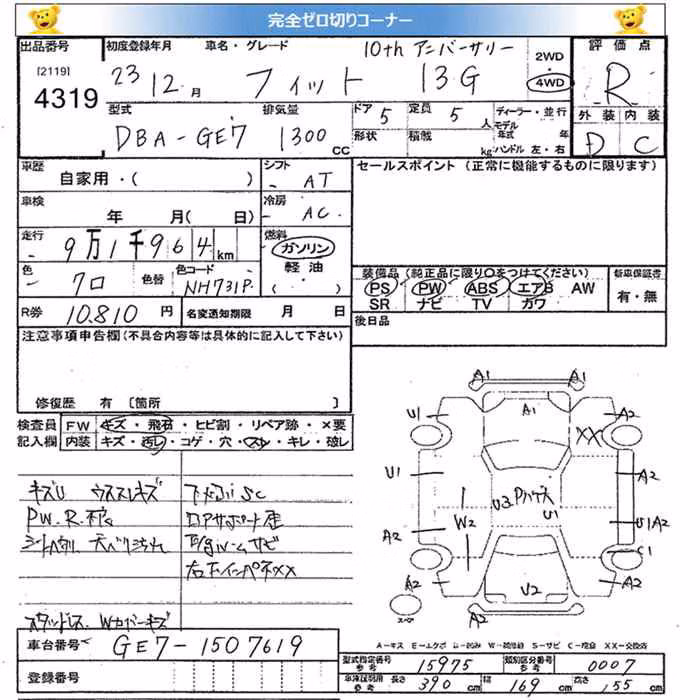 完全ゼロ切りコーナー
出品番号 初度登録年月 車名・グレード 10th アニバーサリー 2WD・4WD 評価点
[2119]
4319 23 12月 フィット 13G R
型式 排気量 ドア 5 定員 5人 ディーラー・並行 外装 内装
DBA-GE7 1300cc 形状 積載 kg モデル年式 年 ハンドル 左・右 D C
車歴 自家用・( ) シフト - AT セールスポイント (正常に機能するものに限ります)
車検 年 月( 日) 冷房 - AC
走行 - 9万1千964km 燃料 ガソリン 軽油 ( )
色 - クロ 色替 色コード NH731P 装備品 (純正品に限り○をつけてください) 新車保証書
PS PW ABS エアB AW 有・無
SR ナビ TV カワ
R券 10.810円 名変通知期限 月 日 後日品
注意事項申告欄(不具合内容等は具体的に記入して下さい)
修復歴 有 [箇所 ]
検査員 FW キズ・飛石・ヒビ割・リペア跡・×要
記入欄 内装 キズ・汚レ・コゲ・穴・スレ・キレ・破レ
キズU ウスキズ
PW.R.
シート
スタッドレス Wカバーキズ
下 SC
サビ
右 インパネXX
A1 A1
U1 A1 A2
XX
U1 A2
U3 Pハゲ U1
W2 U1A2
A2 C1
A2 A2
U2
スペアー A2
A-キズ E-エクボ U-凹み W-補修跡 S-サビ C-腐食 XX-交換済
車台番号 GE7-1507619
型式指定番号 参考 15975 類別区分番号 参考 0007
登録番号 車庫証明用 参考 長さ 390cm 幅 169cm 高さ 155cm